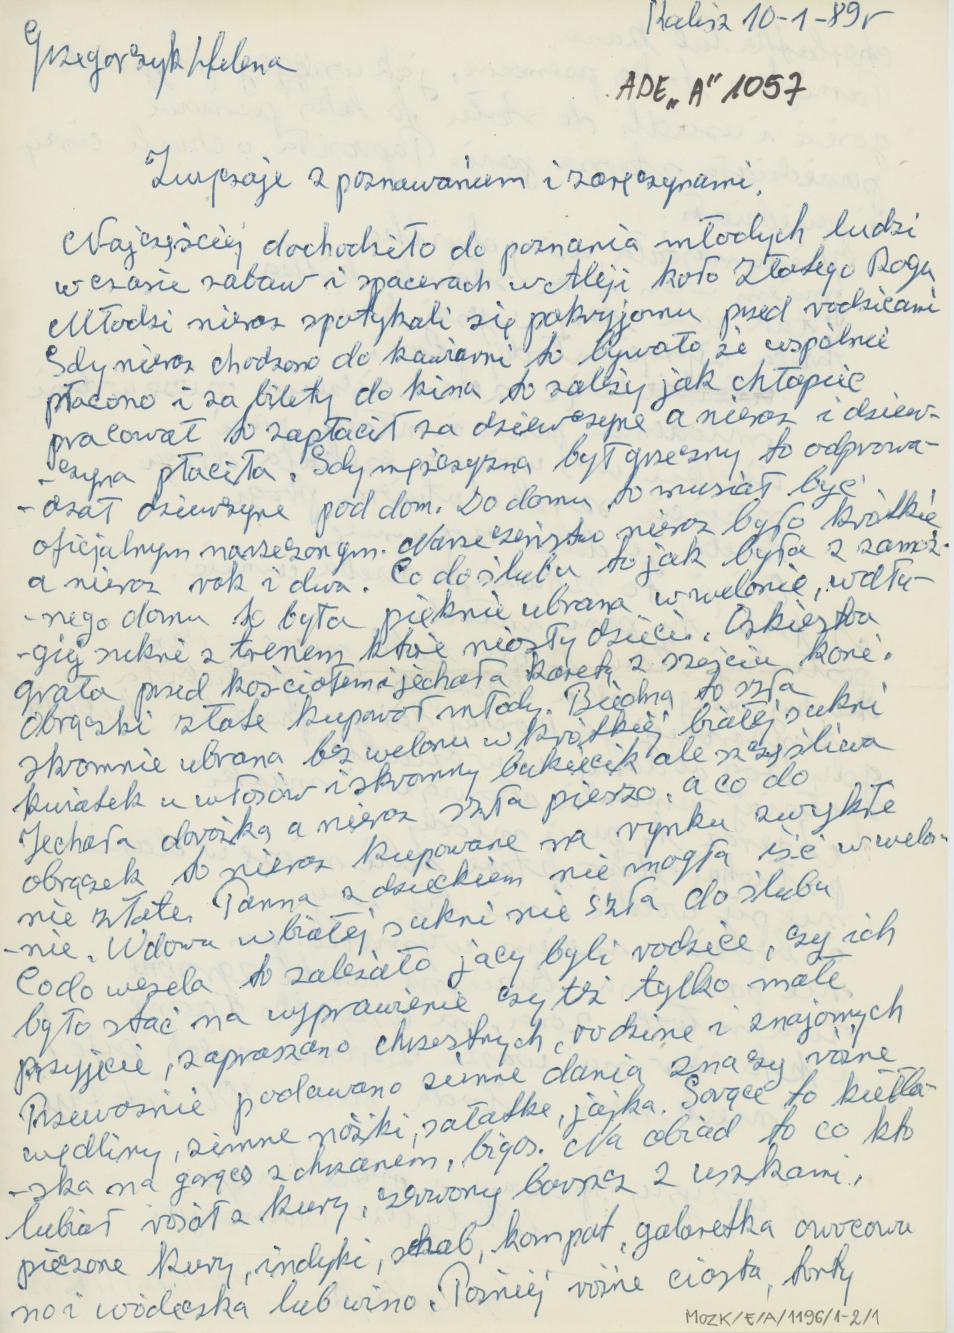 Kalisz 10-1-89r
Grzegorczyk Helena
ADE „A" 1057
Zwyczaje z poznawaniem i zaręczynami.
Najczęściej dochodziło do poznania młodych ludzi
w czasie zabaw i spacerach w Aleji koło Złotego Rogu
Młodzi nieraz spotykali się pokryjomu przed rodzicami
Gdy nieraz chodzono do kawiarni to bywało że wspólnie
płacono i za bilety do kina to zależy jak chłopiec
pracował to zapłacił za dziewczynę a nieraz i dziew-
-czyna płaciła. Gdy mężczyzna był grzeczny to odprowa-
-dzał dziewczynę pod dom. Do domu to musiał być
oficjalnym narzeczonym. Narzeczeństwo nieraz było krótkie
a nieraz rok i dwa. Co do ślubu to jak była z zamoż-
-nego domu to była pięknie ubrana w welonie, w dłu-
-giej sukni z trenem które niosły dzieci. Orkiestra
grała przed kościołem i jechała karetą z sześciu koni.
Obrączki złote kupował młody. Biedna to szła
skromnie ubrana bez welonu w krótkiej białej sukni
kwiatek u włosów i skromny bukiecik ale szczęśliwa
Jechała dorożką a nieraz szła pieszo. a co do
obrączek to nieraz kupowane na rynku zwykłe
nie złote. Panna z dzieckiem nie mogła iść w welo-
-nie. Wdowa w białej sukni nie szła do ślubu
Co do wesela to zależało jacy byli rodzice, czy ich
było stać na wyprawienie czy też tylko małe
przyjęcie, zapraszano chrzestnych, rodzinę i znajomych
Przeważnie podawano zimne dania znaczy różne
wędliny, zimne nóżki, sałatkę, jajka. Gorące to kiełba-
-ska na gorąco z chrzanem, bigos. Na obiad to co kto
lubiał rosół z kury, czerwony barszcz z uszkami,
pieczone kury, indyki, schab, kompot, galaretka owocowa
no i wódeczka lub wino. Póżniej różne ciasta, torty
MOZK/E/A/1196/1-2/1